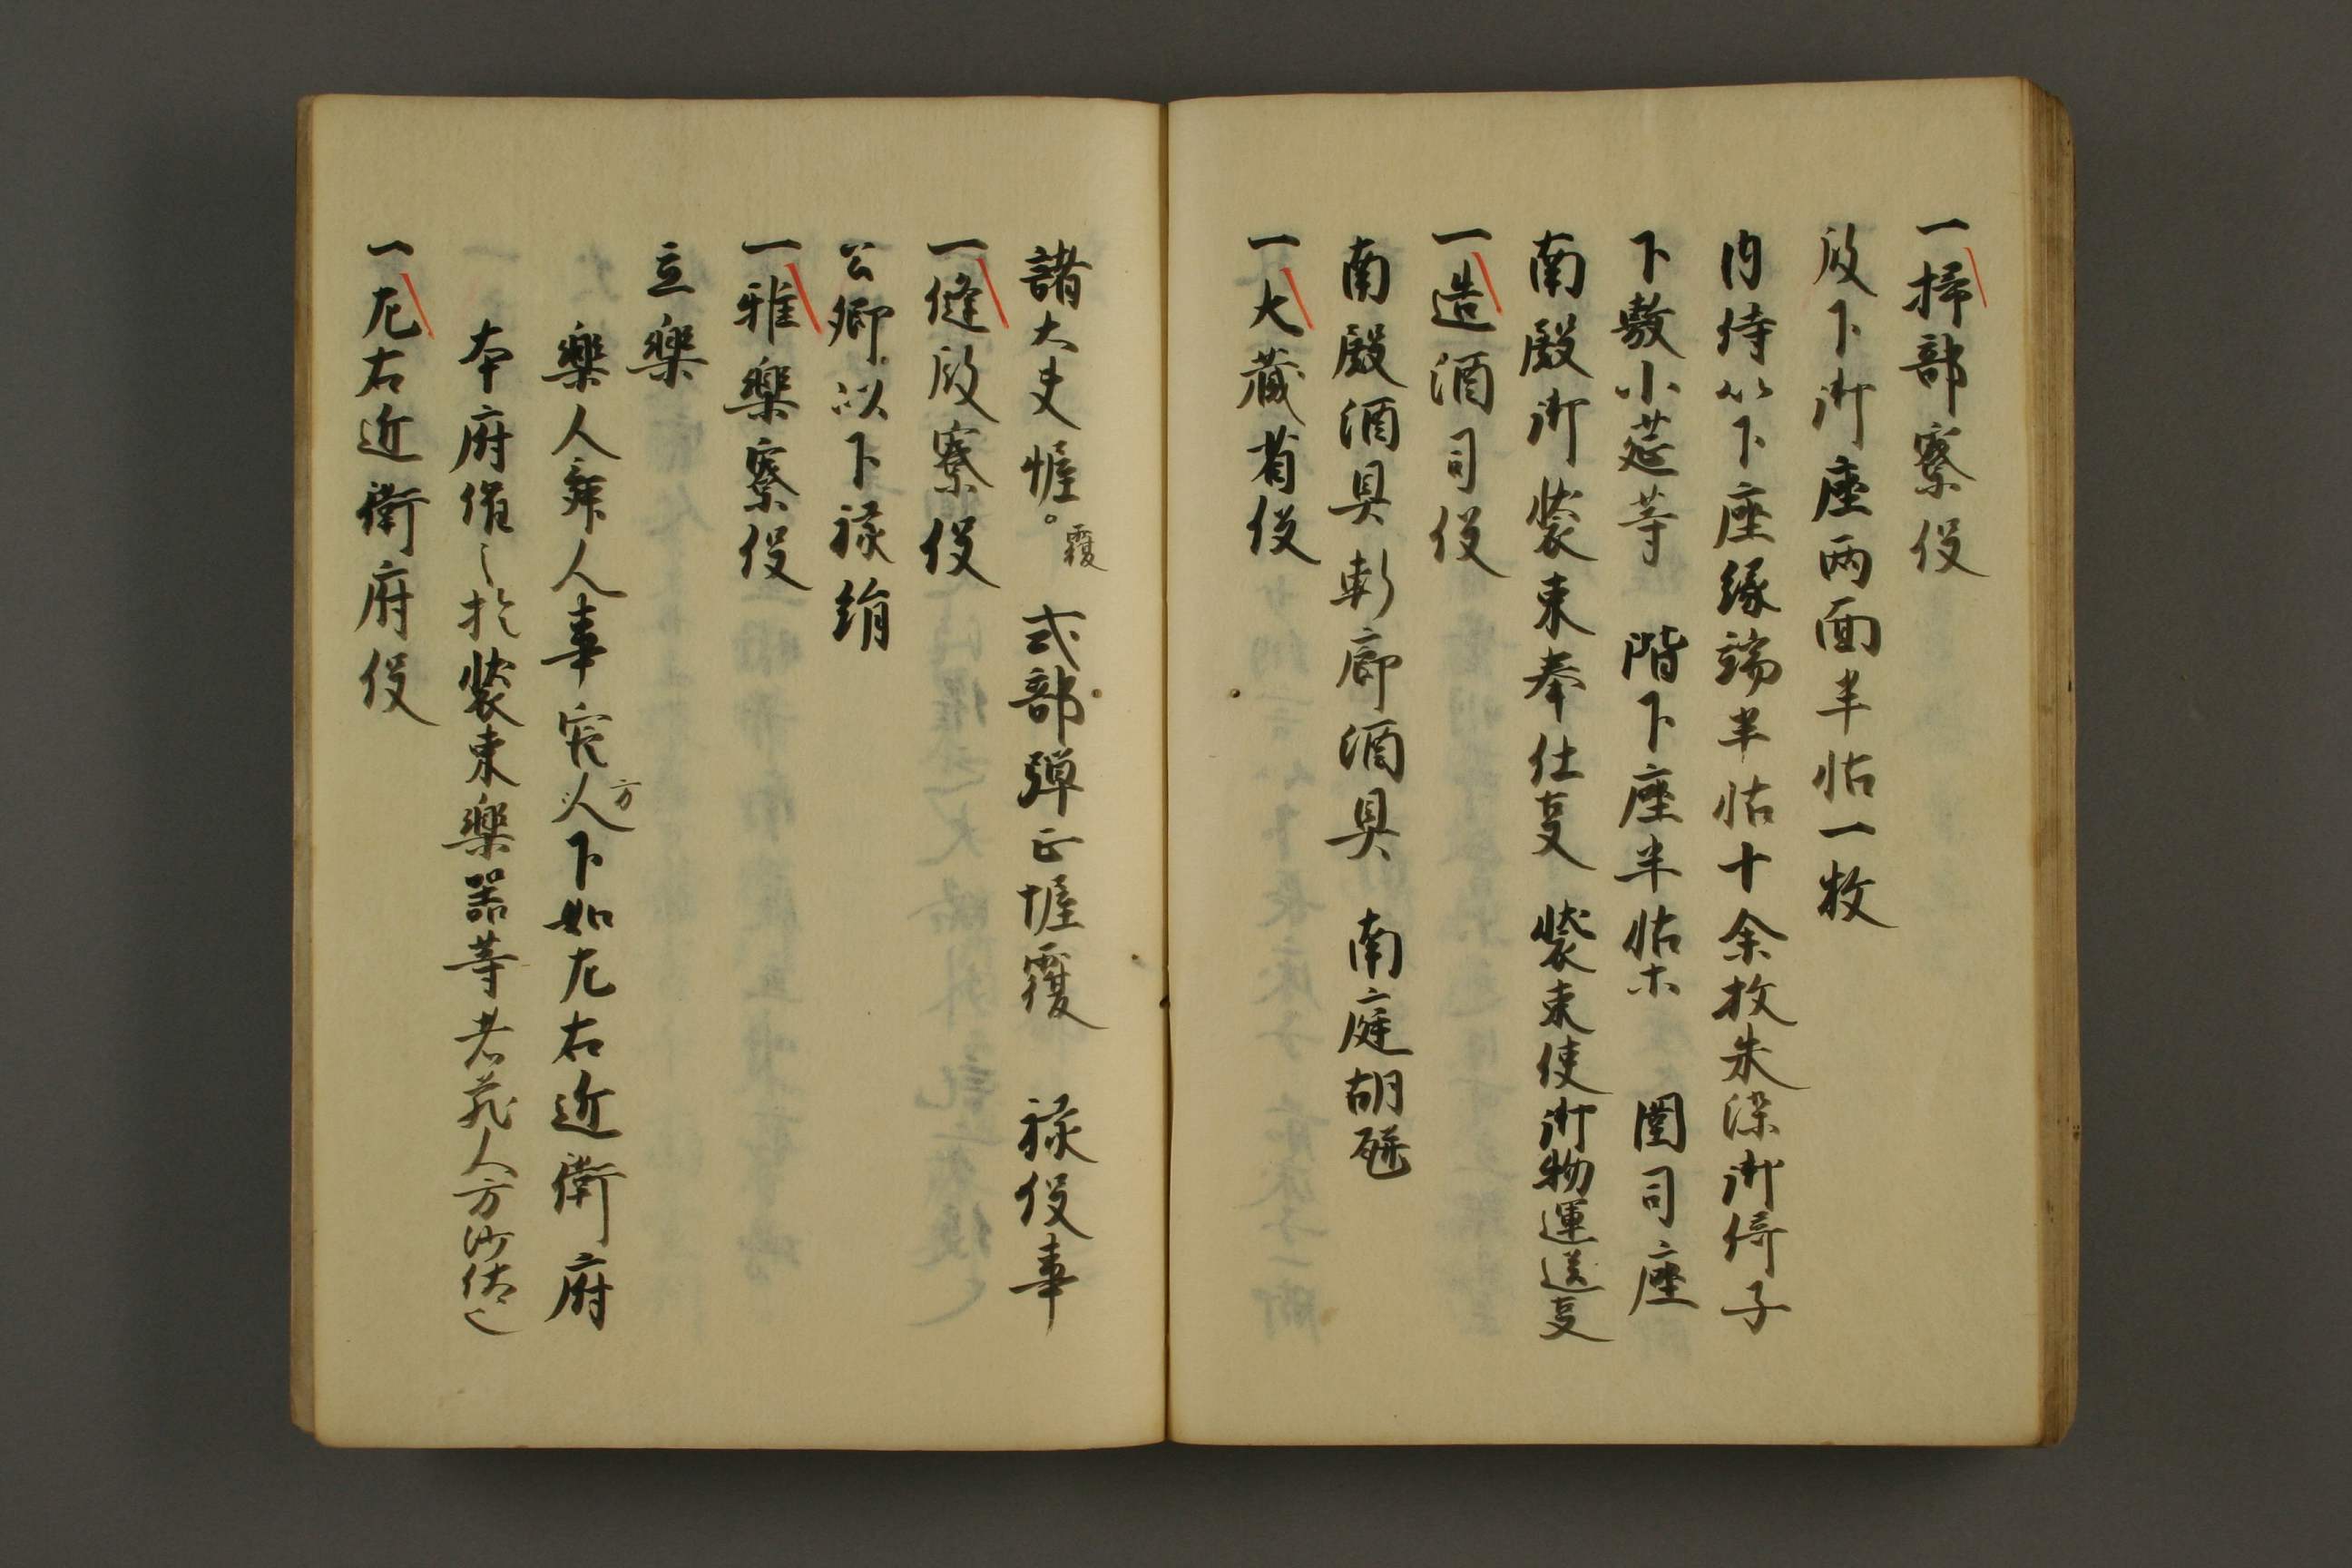 一掃部寮役
殿下御座両面半帖一枚
内侍以下座縁端半帖十余枚朱漆御倚子
下敷小莚等　階下座半帖木　圍司座
南殿御装束奉仕㕝　装束使御物運送㕝
一造酒司役
南殿酒具軒廊酒具　南庭胡瓶
一大蔵省役
諸大夫幄。覆　式部弾正幄覆　禄役事
一縫殿寮役
公卿以下禄絹
一雅楽寮役
立楽
楽人舞人事　方人下如左右近衛府
本府催之於装束楽器等者蔵人方沙汰之
一左右近衛府役